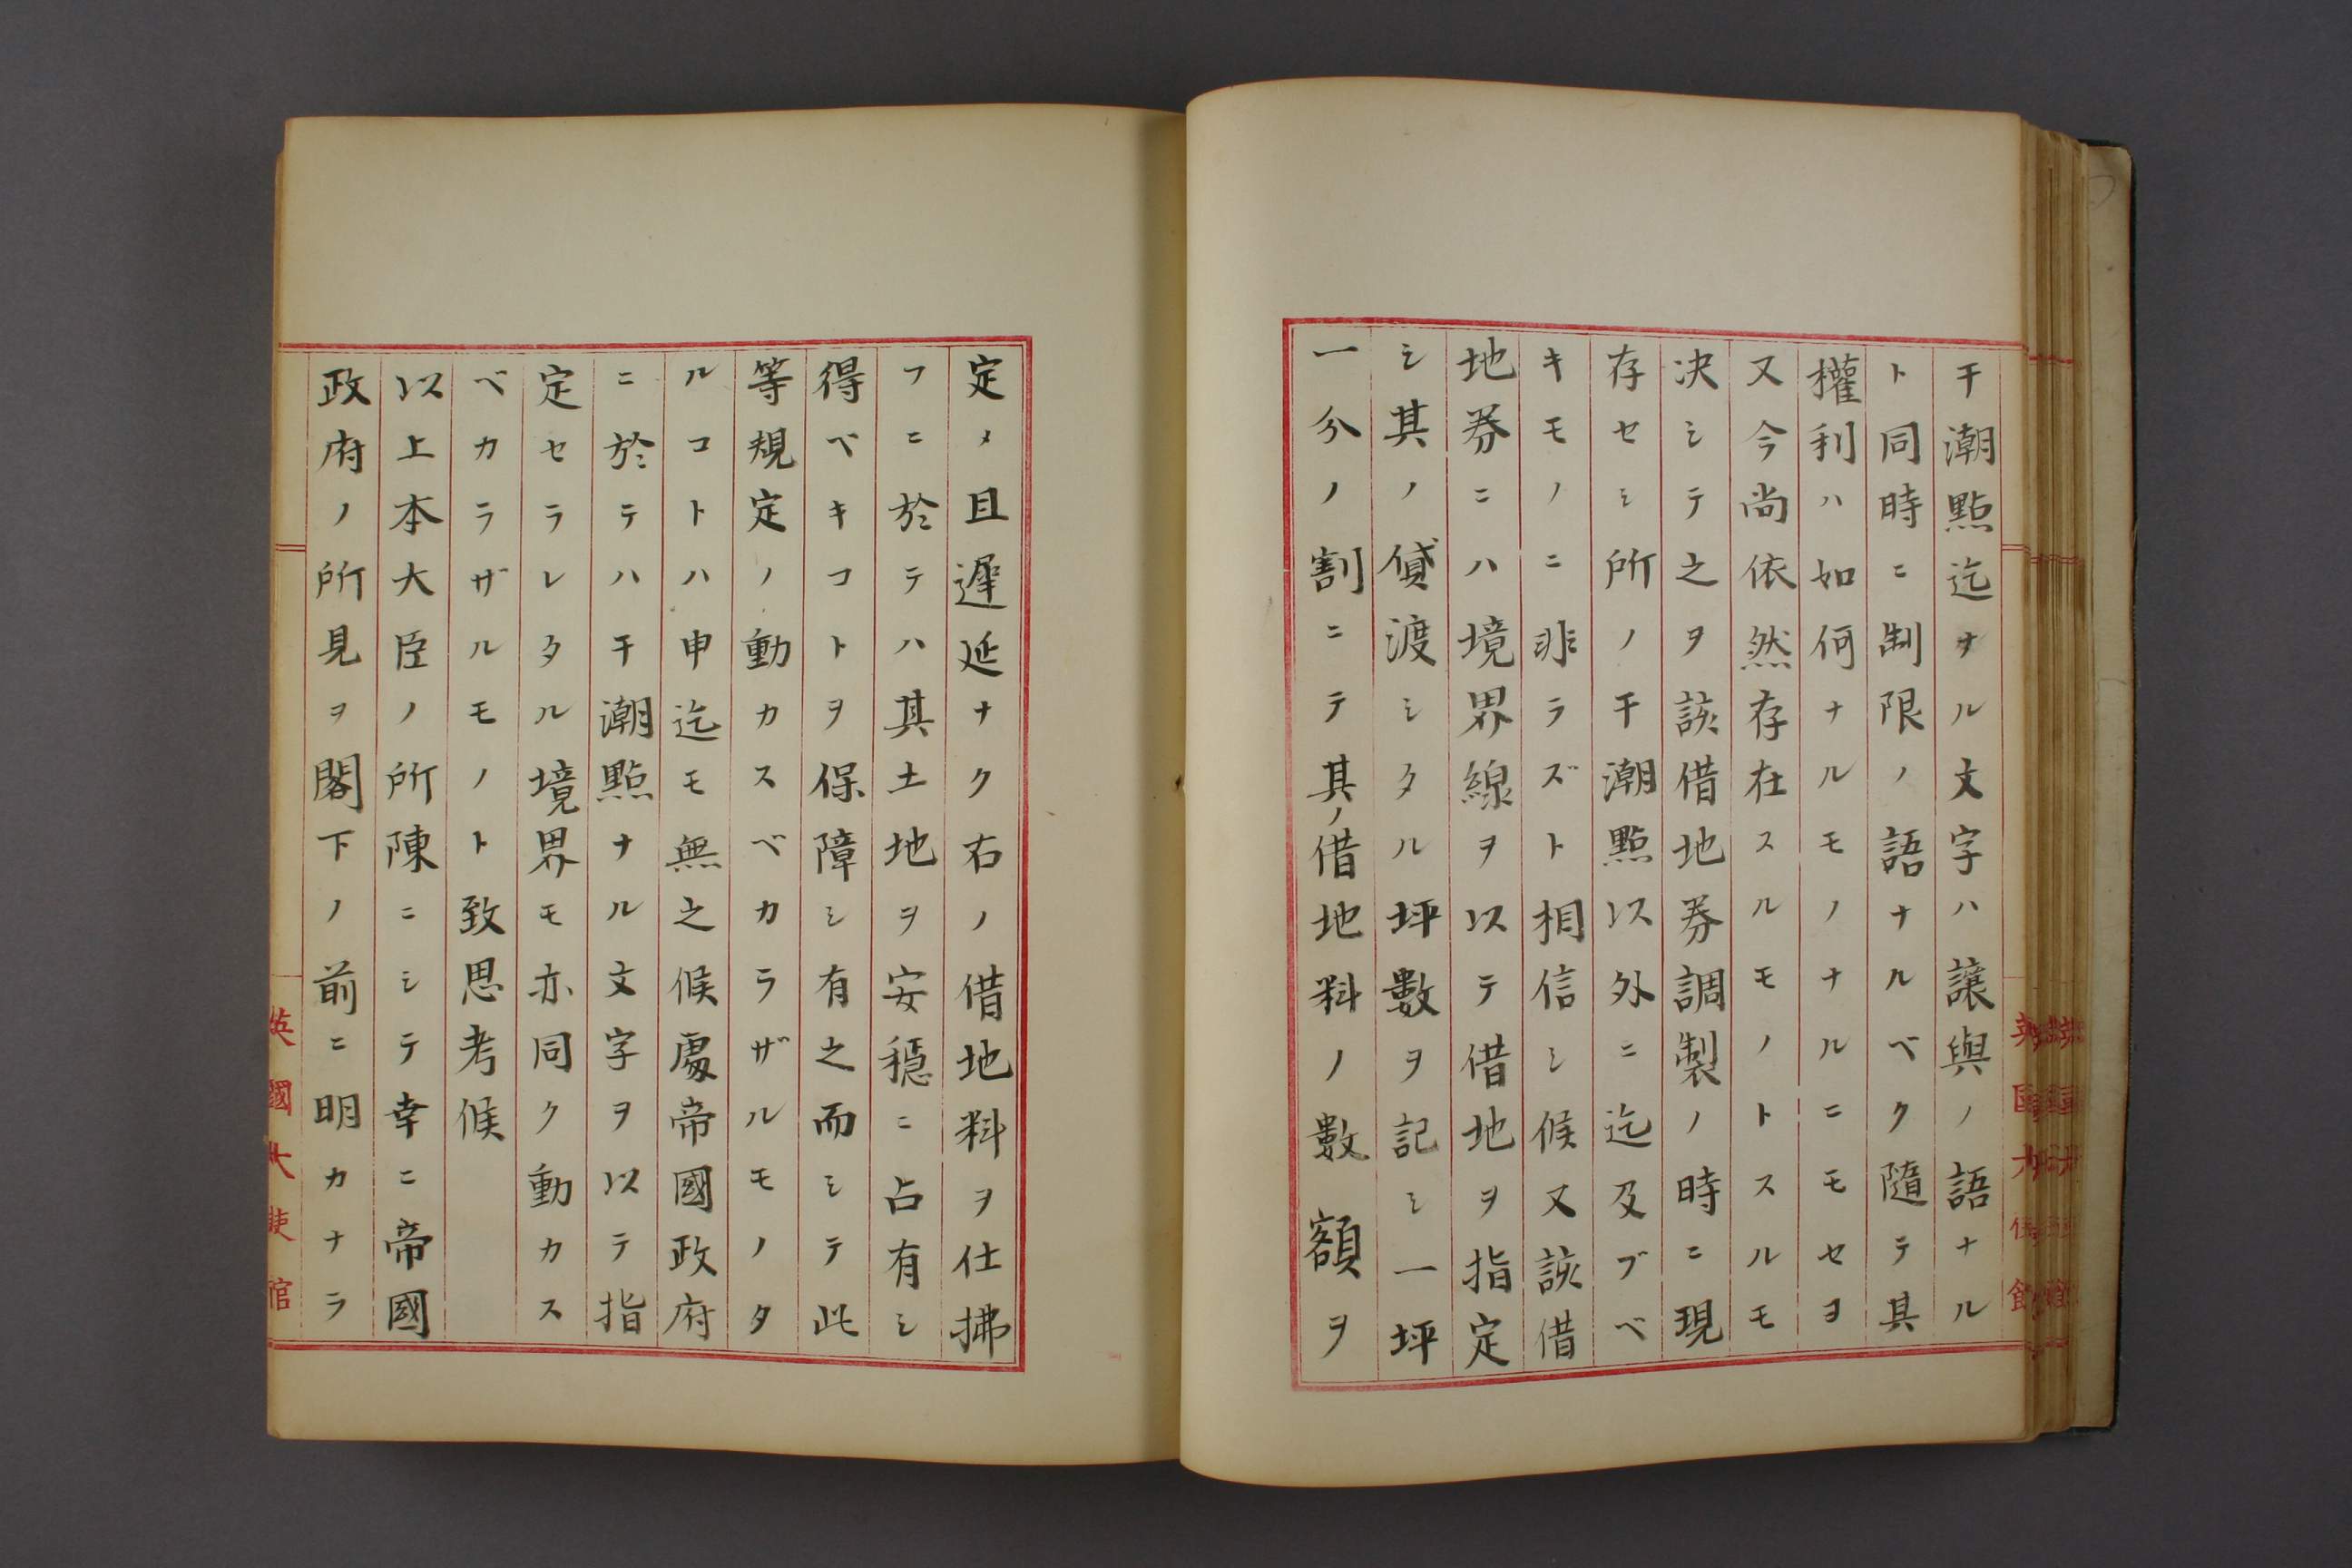 干潮點迄ナル文字ハ譲與ノ語ナル
ト同時ニ制限ノ語ナルベク隨テ其
權利ハ如何ナルモノナルニモセヨ
又今尚依然存在スルモノトスルモ
决シテ之ヲ該借地券調製ノ時ニ現
存セシ所ノ干潮點以外ニ迄及ブベ
キモノニ非ラズト相信シ候又該借
地券ニハ境界線ヲ以テ借地ヲ指定
シ其ノ貸渡シタル坪數ヲ記シ一坪
一分ノ割ニテ其ノ借地料ノ數額ヲ
定メ且遲延ナク右ノ借地料ヲ仕拂
フニ於テハ其土地ヲ安穏ニ占有シ
得ベキコトヲ保障シ有之而シテ此
等規定ノ動カスベカラザルモノタ
ルコトハ申迄モ無之候處帝國政府
ニ於テハ干潮點ナル文字ヲ以テ指
定セラレタル境界モ亦同ク動カス
ベカラザルモノト致思考候
以上本大臣ノ所陳ニシテ幸ニ帝國
政府ノ所見ヲ閣下ノ前ニ明カナラ
英國大使館